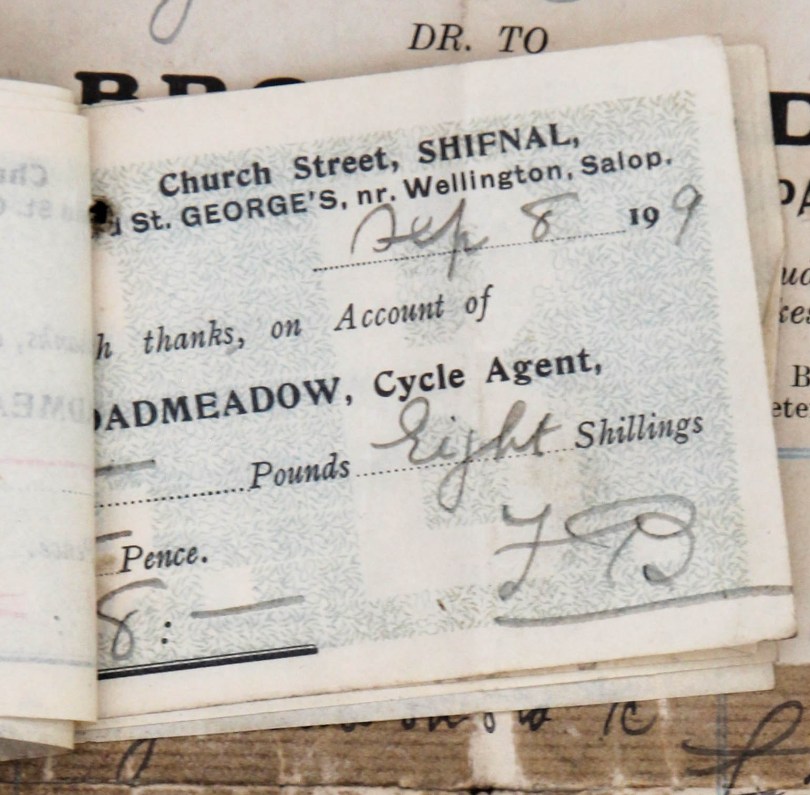 DR. TO
BRO
Church Street, SHIFNAL,
d St. GEORGE'S, nr. Wellington, Salop.
Sep 8 199
h thanks, on Account of
OADMEADOW, Cycle Agent,
— Pounds Eight Shillings
— Pence.
F B
8 : —